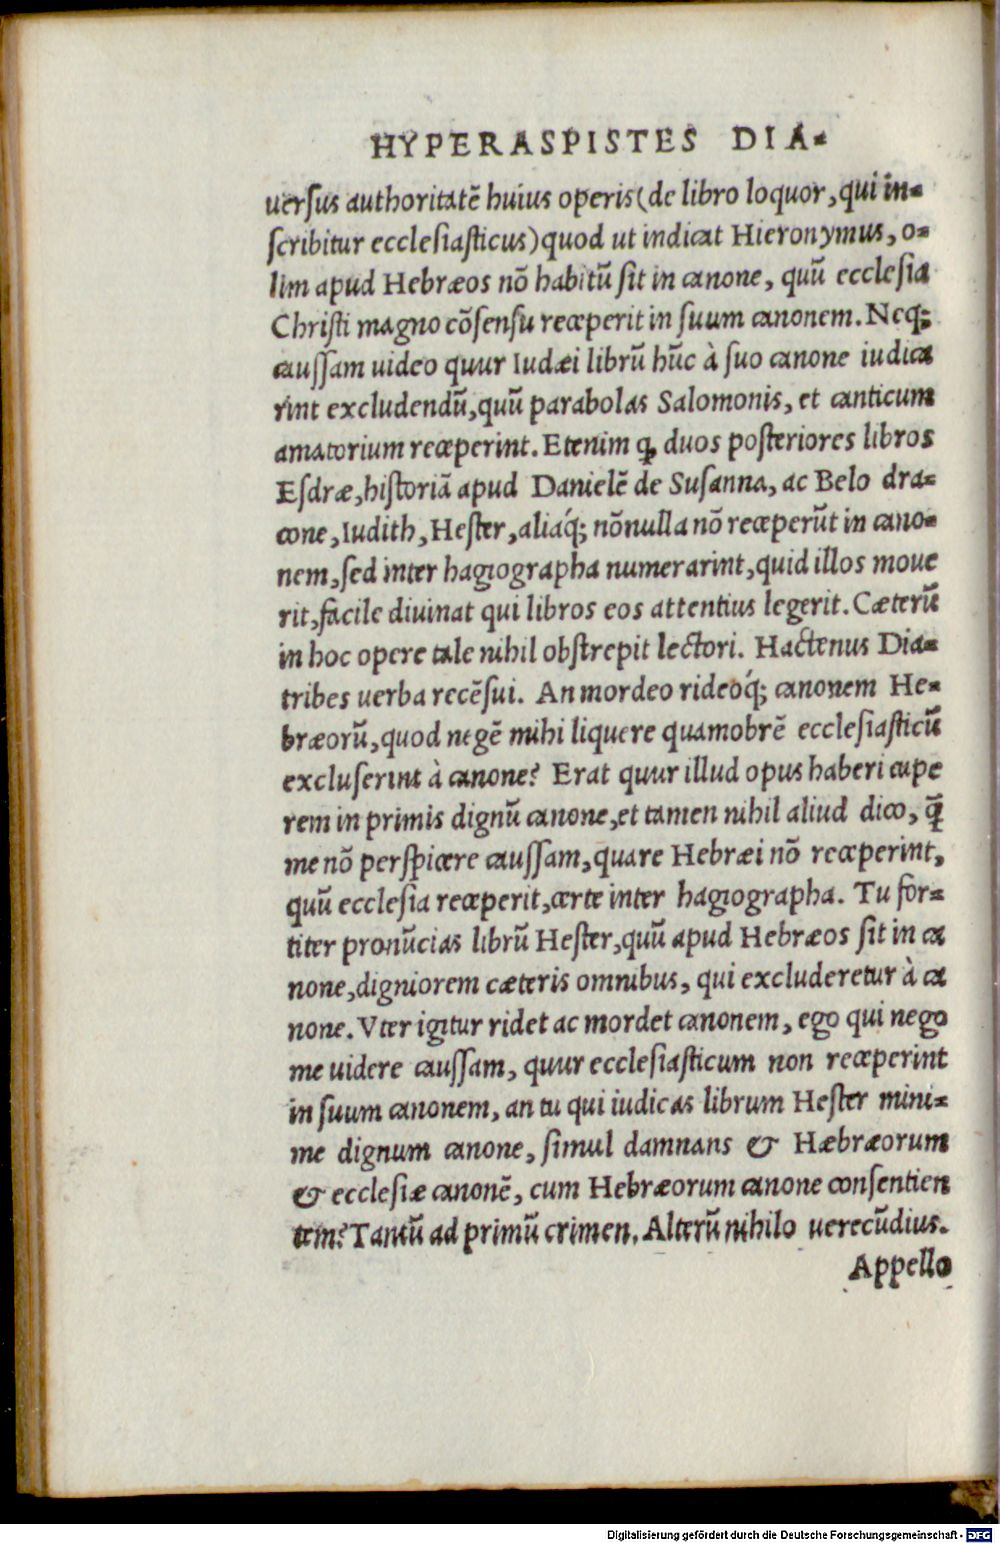 HYPERASPISTES DIA-
uersus authoritatē huius operis (de libro loquor, qui in-
scribitur ecclesiasticus) quod ut indicat Hieronymus, o-
lim apud Hebræos nō habitū sit in canone, quū ecclesia
Christi magno cōsensu receperit in suum canonem. Neq;
caussam uideo quur Iudæi librū hūc à suo canone iudica
rint excludendū, quū parabolas Salomonis, et canticum
amatorium receperint. Etenim ꝙ duos posteriores libros
Esdræ, historiā apud Danielē de Susanna, ac Belo dra-
cone, Iudith, Hester, aliaq́; nōnulla nō receperūt in cano-
nem, sed inter hagiographa numerarint, quid illos moue
rit, facile diuinat qui libros eos attentius legerit. Cæterū
in hoc opere tale nihil obstrepit lectori. Hactenus Dia-
tribes uerba recēsui. An mordeo rideoq́; canonem He-
bræorū, quod negē mihi liquere quamobrē ecclesiasticū
excluserint à canone? Erat quur illud opus haberi cupe
rem in primis dignū canone, et tamen nihil aliud dico, q̄
me nō perspicere caussam, quare Hebræi nō receperint,
quū ecclesia receperit, certe inter hagiographa. Tu for-
titer pronūcias librū Hester, quū apud Hebræos sit in ca
none, digniorem cæteris omnibus, qui excluderetur à ca
none. Vter igitur ridet ac mordet canonem, ego qui nego
me uidere caussam, quur ecclesiasticum non receperint
in suum canonem, an tu qui iudicas librum Hester mini-
me dignum canone, simul damnans & Hæbræorum
& ecclesiæ canonē, cum Hebræorum canone consentien
tem? Tantū ad primū crimen. Alterū nihilo uerecūdius.
Appello
Digitalisierung gefördert durch die Deutsche Forschungsgemeinschaft - DFG